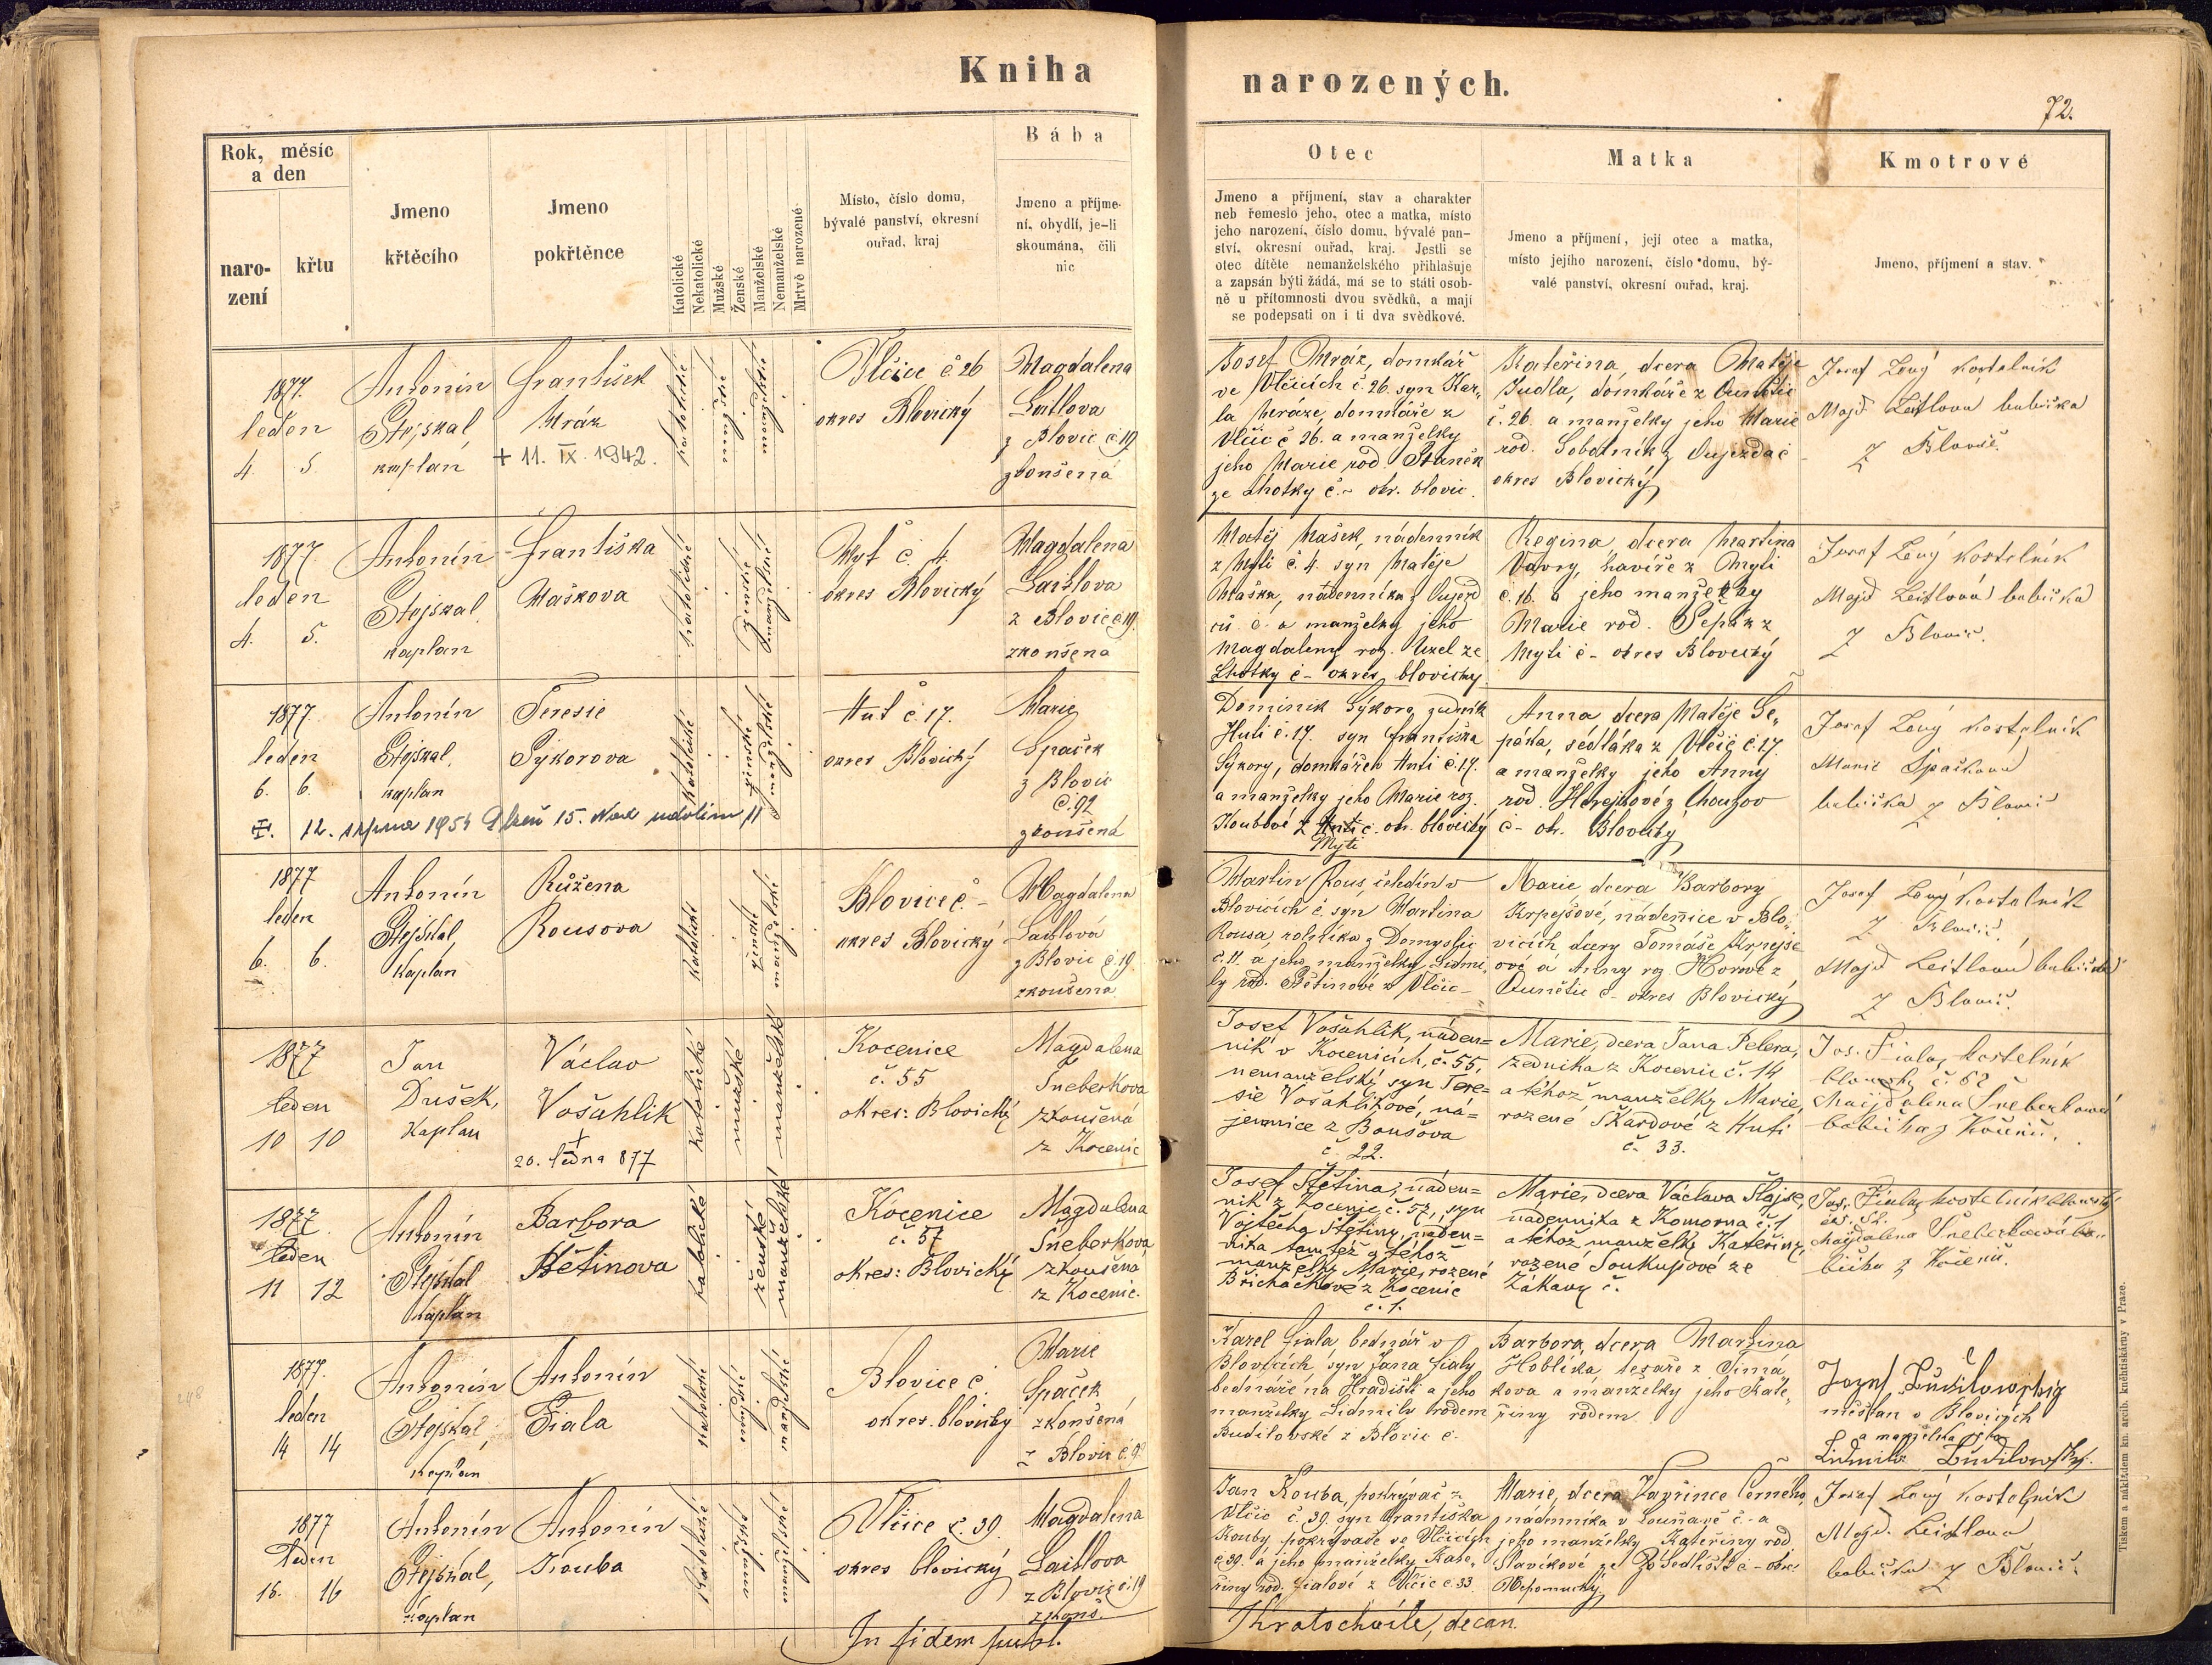 Kniha narozených.
72.
Rok, měsíc
a den
naro-
zení
křtu
Jmeno
křtěcího
Jmeno
pokřtěnce
Katolické
Nekatolické
Mužské
Ženské
Manželské
Nemanželské
Mrtvě narozené
Místo, číslo domu,
bývalé panství, okresní
ouřad, kraj
Bába
Jmeno a příjme-
ní, obydlí, je-li
skoumána, čili
nic
Otec
Jmeno a příjmení, stav a charakter
neb řemeslo jeho, otec a matka, místo
jeho narození, číslo domu, bývalé pan-
ství, okresní ouřad, kraj. Jestli se
otec dítěte nemanželského přihlašuje
a zapsán býti žádá, má se to státi osob-
ně u přítomnosti dvou svědků, a mají
se podepsati on i ti dva svědkové.
Matka
Jmeno a příjmení, její otec a matka,
místo jejího narození, číslo domu, bý-
valé panství, okresní ouřad, kraj.
Kmotrové
Jmeno, příjmení a stav.
1877.
leden
4. 5.
Antonín
Stejskal
kaplan
František
Mráz
+ 11. IX. 1942.
katolické
mužské
manželské
Vlčice č 26
okres Blovický
Magdalena
Laitlova
z Blovic č 19
zkoušená
Josef Mráz, domkář
ve Vlčicích č. 26. syn Kar-
la Mráze, domkáře z
Vlčic č 26. a manželky
jeho Marie rod. Staněk
ze Lhotky č. - okr. blovic.
Kateřina, dcera Matěje
Judla, domkáře z Ounětic
č. 26. a manželky jeho Marie
rod. Sobotník z Oujezda č -
okres Blovický
Josef Lený kostelník
Majd. Leitlova babička
z Blovic.
1877.
leden
4. 5.
Antonín
Stejskal
kaplan
Františka
Maškova
katolické
ženské
manželské
Myť č. 4.
okres Blovický
Magdalena
Laitlova
z Blovic č 19.
zkoušena
Matěj Mašek, nádenník
z Myti č. 4. syn Matěje
Maška, nádenníka z Oujezd
ců č. a manželky jeho
Magdaleny roz. Uzel ze
Lhotky č - okres blovický.
Regina, dcera Martina
Vávry, havíře z Myti
č. 16. a jeho manželky
Marie rod. Čepák z
Myti č - okres Blovický
Josef Lený kostelník
Majd Leitlová babička
z Blovic.
1877.
leden
6. 6.
Antonín
Stejskal,
kaplan
Teresie
Sýkorova
katolické
ženské
manželské
Huť č. 17.
okres Blovický
Marie
Spaček
z Blovic
č. 92
zkoušená
12. srpna 1954 Plzeň 15. Nad údolím 11
Dominik Sýkora, zedník
Huti č. 17. syn Františka
Sýkory, domkáře z Huti č. 17.
a manželky jeho Marie roz.
Koubové z Huti č. okr. blovický
Myti
Anna dcera Matěje Če-
páka, sedláka z Vlčic č. 17.
a manželky jeho Anny
rod. Herejkové z Chouzov
č - ok. Blovický
Josef Lený kostelník
Marie Spačkova
babička z Blovic
1877
leden
6. 6.
Antonín
Stejskal,
kaplan
Růžena
Rousova
katolické
ženské
manželské
Blovice č. -
okres Blovický
Magdalena
Laitlová
z Blovic č. 19
zkoušena
Martin Rous, čeledín v
Blovicích č. syn Martina
Rousa, rolníka z Domyslic
č. 11. a jeho manželky Lidmi-
ly rod. Štětinové z Vlčic -
Marie dcera Barbory
Krpejšové, nádenice v Blo-
vicích dcery Tomáše Krpejše
ové a Anny roz. Horové z
Ounětic č - okres Blovický
Josef Lený kostelník
z Blovic.
Majd Leitlova babička
z Blovic.
1877
leden
10 10
Jan
Dušek,
kaplan
Václav
Vošahlik
+
20. ledna 877
katolické
mužské
manželské
Kocenice
č. 55
okres: Blovický
Magdalena
Šneberkova
zkoušená
z Kocenic
Josef Vošahlik, náden=
ník v Kocenicích, č. 55,
nemanželský syn Tere=
sie Vošahlíkové, ná=
jemnice z Boušova
č. 22.
Marie, dcera Jana Pelera,
zedníka z Kocenic č. 14
a téhož manželky Marie,
rozené Škardové z Huti
č. 33.
Jos. Fiala, kostelník
blovický č. 62
Majdalena Šneberkowá
babička z Kocenic.
1877.
leden
11 12
Antonín
Stejskal
kaplan
Barbora
Štětinova
katolické
ženské
manželské
Kocenice
č. 57
okres: Blovický
Magdalena
Šneberkova
zkoušená
z Kocenic.
Josef Štětina, náden=
ník z Kocenic č. 57, syn
Vojtěcha Štětiny, náden=
níka tamtéž a téhož
manželky Marie, rozené
Břicháčkové z Kocenic
č. 1.
Marie, dcera Václava Šlajse,
nádenníka z Komorna č. 1
a téhož manželky Kateřiny,
rozené Soukupové ze
Zákavy č.
Jos. Fiala, kostelník blovický
Magdalena Šneberkowá ba-
bička z Kocenic.
1877.
leden
14 14
Antonín
Stejskal,
kaplan
Antonín
Fiala
katolické
mužské
manželské
Blovice č.
okres. blovický
Marie
Spaček
zkoušená
z Blovic č. 92
Karel Fiala, bednář v
Blovicích, syn Jana Fialy
bednáře na Hradišti a jeho
manželky Lidmily rodem
Budilovské z Blovic č.
Barbora, dcera Martina
Hoblíka, tesaře z Šimá-
kova a manželky jeho Kate-
řiny rodem
Jozef Budilowský
měšťan v Blovicých
a manželka
Lidmila Budilowský.
1877
leden
16. 16
Antonín
Stejskal,
kaplan
Antonín
Kouba
katolické
mužské
manželské
Vlčice č. 39.
okres blovický
Magdalena
Laitlova
z Blovic č. 19
zkouš.
Jan Kouba, pokrývač z
Vlčic č. 39. syn Františka
Kouby, pokrývače ve Vlčicích
č. 39. a jeho manželky Kate-
řiny rod. Fialové z Vlčic č. 33.
Marie, dcera Vavřince Černého,
nádenníka v Louňavě č. - a
jeho manželky Kateřiny rod
Slavíkové ze Sedliště č - okr.
Nepomucký
Josef Lený kostelník
Majd. Leitlova
babička z Blovic.
In fidem publ.
Kratochvíle, decan.
Tiskem a nákladem kn. arcib. knihtiskárny v Praze.